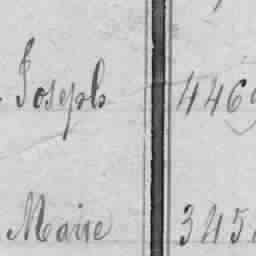 Joseph 446
Marie 345